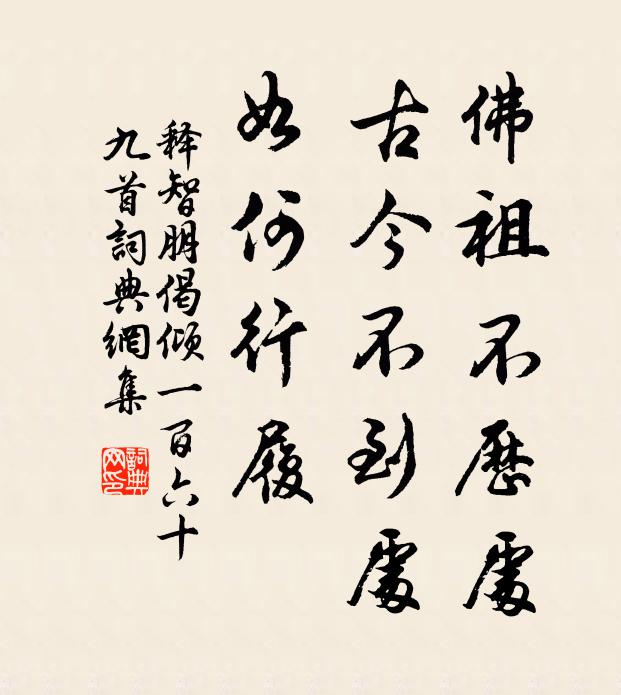 佛祖不歷處
古今不到處
如何行履
释智朋偈傾一百六十
九首詞典網集
詞典網印